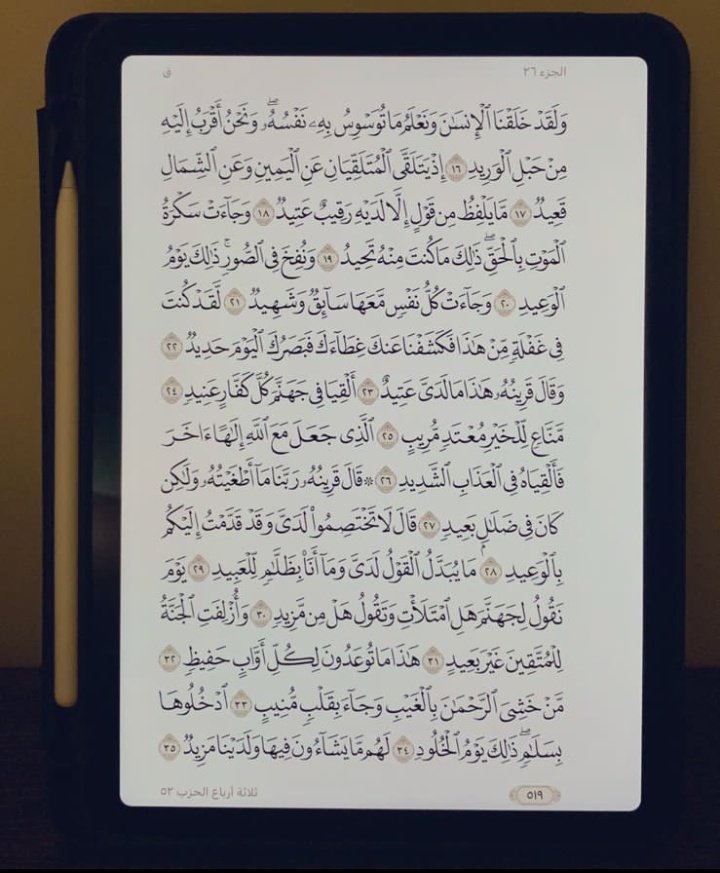 الجزء ٢٦
ق
وَلَقَدْ خَلَقْنَا ٱلْإِنسَٰنَ وَنَعْلَمُ مَا تُوَسْوِسُ بِهِۦ نَفْسُهُۥۖ وَنَحْنُ أَقْرَبُ إِلَيْهِ
مِنْ حَبْلِ ٱلْوَرِيدِ ١٦ إِذْ يَتَلَقَّى ٱلْمُتَلَقِّيَانِ عَنِ ٱلْيَمِينِ وَعَنِ ٱلشِّمَالِ
قَعِيدٌ ١٧ مَّا يَلْفِظُ مِن قَوْلٍ إِلَّا لَدَيْهِ رَقِيبٌ عَتِيدٌ ١٨ وَجَآءَتْ سَكْرَةُ
ٱلْمَوْتِ بِٱلْحَقِّۖ ذَٰلِكَ مَا كُنتَ مِنْهُ تَحِيدُ ١٩ وَنُفِخَ فِى ٱلصُّورِۚ ذَٰلِكَ يَوْمُ
ٱلْوَعِيدِ ٢٠ وَجَآءَتْ كُلُّ نَفْسٍ مَّعَهَا سَآئِقٌ وَشَهِيدٌ ٢١ لَّقَدْ كُنتَ
فِى غَفْلَةٍ مِّنْ هَٰذَا فَكَشَفْنَا عَنكَ غِطَآءَكَ فَبَصَرُكَ ٱلْيَوْمَ حَدِيدٌ ٢٢
وَقَالَ قَرِينُهُۥ هَٰذَا مَا لَدَىَّ عَتِيدٌ ٢٣ أَلْقِيَا فِى جَهَنَّمَ كُلَّ كَفَّارٍ عَنِيدٍ ٢٤
مَّنَّاعٍ لِّلْخَيْرِ مُعْتَدٍ مُّرِيبٍ ٢٥ ٱلَّذِى جَعَلَ مَعَ ٱللَّهِ إِلَٰهًا ءَاخَرَ
فَأَلْقِيَاهُ فِى ٱلْعَذَابِ ٱلشَّدِيدِ ٢٦ ۞ قَالَ قَرِينُهُۥ رَبَّنَا مَآ أَطْغَيْتُهُۥ وَلَٰكِن
كَانَ فِى ضَلَٰلٍۭ بَعِيدٍ ٢٧ قَالَ لَا تَخْتَصِمُوا۟ لَدَىَّ وَقَدْ قَدَّمْتُ إِلَيْكُم
بِٱلْوَعِيدِ ٢٨ مَا يُبَدَّلُ ٱلْقَوْلُ لَدَىَّ وَمَآ أَنَا۠ بِظَلَّٰمٍ لِّلْعَبِيدِ ٢٩ يَوْمَ
نَقُولُ لِجَهَنَّمَ هَلِ ٱمْتَلَأْتِ وَتَقُولُ هَلْ مِن مَّزِيدٍ ٣٠ وَأُزْلِفَتِ ٱلْجَنَّةُ
لِلْمُتَّقِينَ غَيْرَ بَعِيدٍ ٣١ هَٰذَا مَا تُوعَدُونَ لِكُلِّ أَوَّابٍ حَفِيظٍ ٣٢
مَّنْ خَشِىَ ٱلرَّحْمَٰنَ بِٱلْغَيْبِ وَجَآءَ بِقَلْبٍ مُّنِيبٍ ٣٣ ٱدْخُلُوهَا
بِسَلَٰمٍۖ ذَٰلِكَ يَوْمُ ٱلْخُلُودِ ٣٤ لَهُم مَّا يَشَآءُونَ فِيهَا وَلَدَيْنَا مَزِيدٌ ٣٥
٥١٩
ثلاثة أرباع الحزب ٥٢